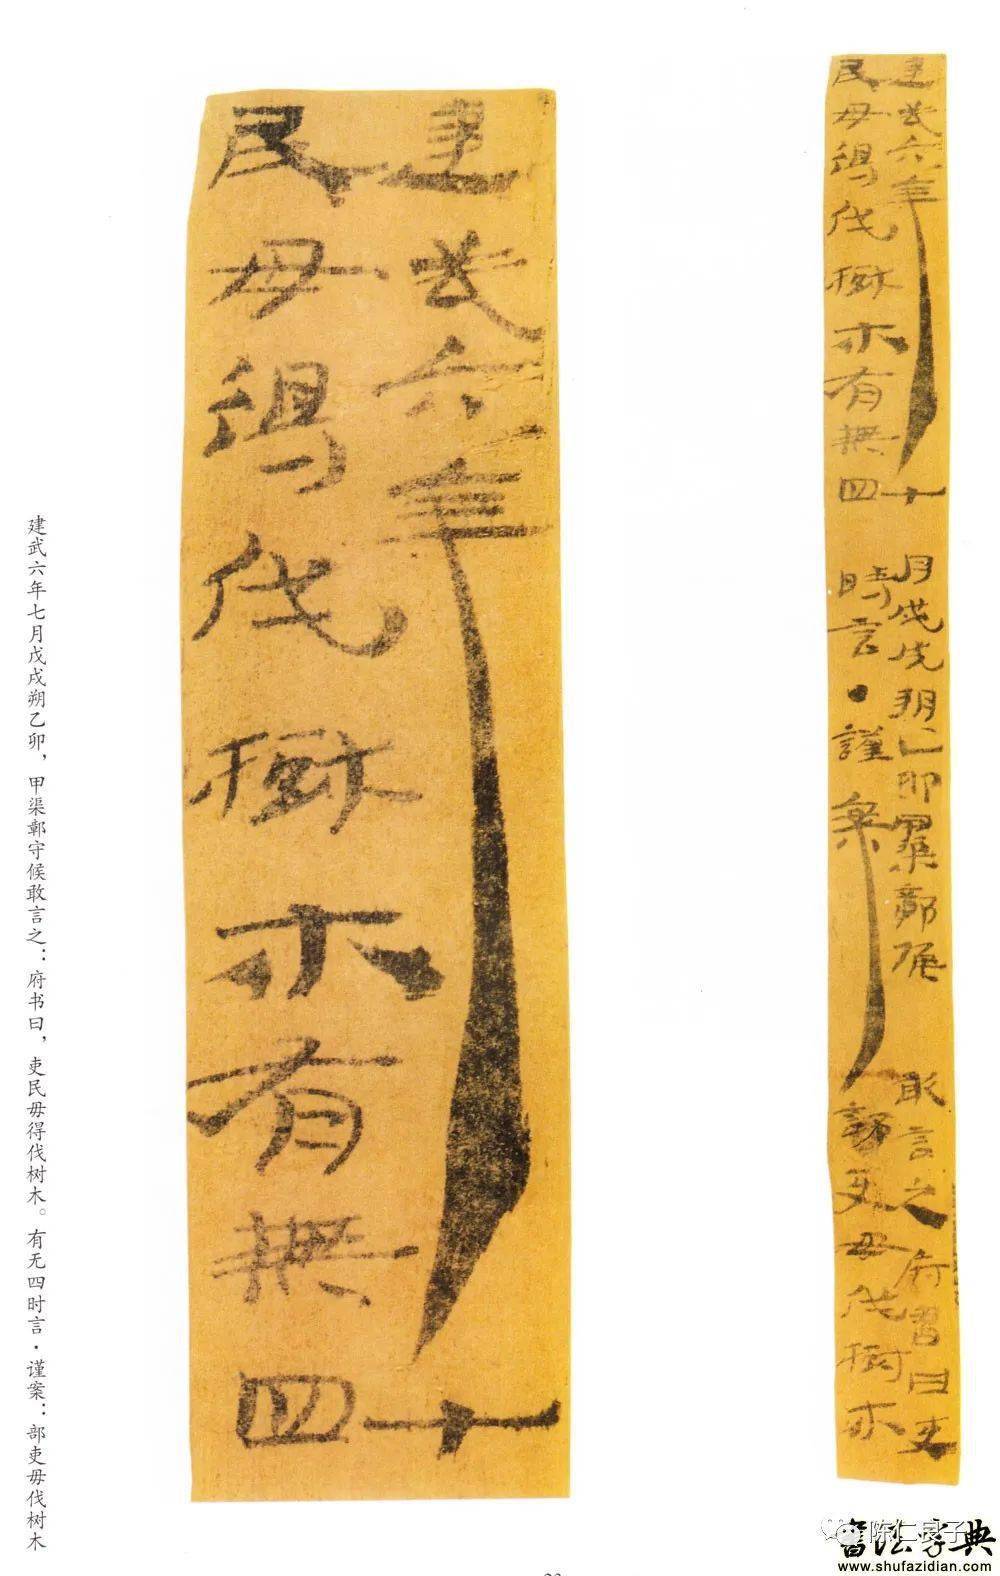 建武六年七月戊戌朔乙卯甲渠鄣候 敢言之府書曰吏
民毋得伐樹木有無四 時言●謹案 部吏毋伐樹木
建武六年七
民毋得伐樹木有無四
建武六年七月戊戌朔乙卯，甲渠鄣守候敢言之：府书曰，吏民毋得伐树木。有无四时言·谨案：部吏毋伐树木
陈仁良子
書法字典
www.shufazidian.com